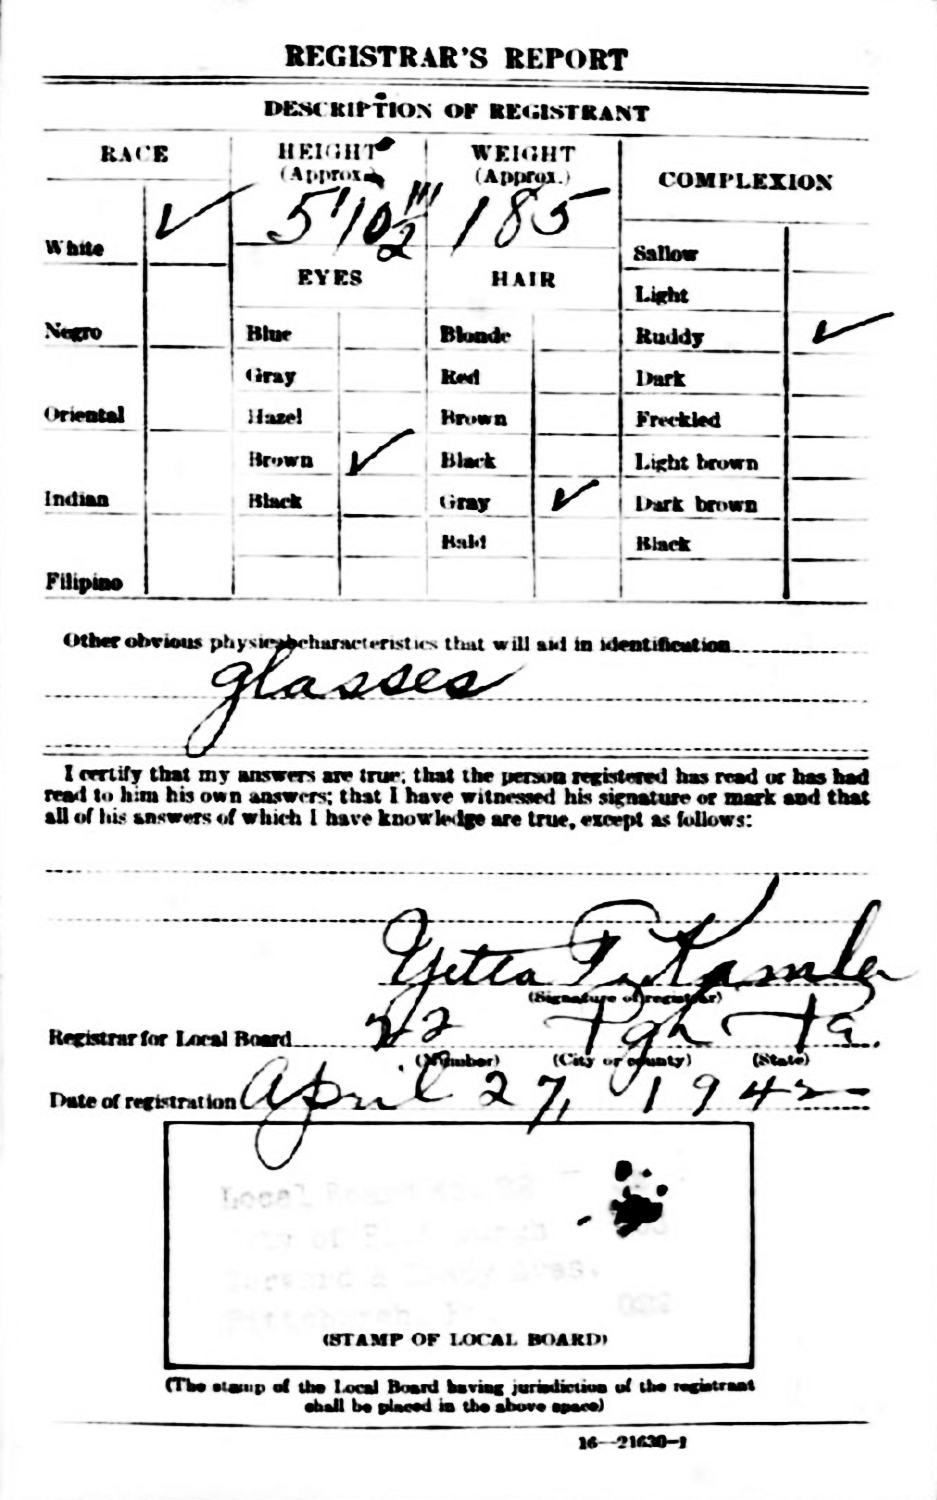 REGISTRAR'S REPORT
DESCRIPTION OF REGISTRANT
RACE
HEIGHT (Approx.)
WEIGHT (Approx.)
COMPLEXION
5'10½" 185
White ✓
Sallow
EYES
HAIR
Light
Negro
Blue
Blonde
Ruddy ✓
Gray
Red
Dark
Oriental
Hazel
Brown
Freckled
Brown ✓
Black
Light brown
Indian
Black
Gray ✓
Dark brown
Bald
Black
Filipino
Other obvious physical characteristics that will aid in identification
glasses
I certify that my answers are true; that the person registered has read or has had
read to him his own answers; that I have witnessed his signature or mark and that
all of his answers of which I have knowledge are true, except as follows:
Yetta
(Signature of registrar)
Registrar for Local Board 22 Pgh Pa.
(Number) (City or county) (State)
Date of registration April 27, 1942
Local Board No. 22
City of Pittsburgh
Pittsburgh, Pa.
(STAMP OF LOCAL BOARD)
(The stamp of the Local Board having jurisdiction of the registrant
shall be placed in the above space)
16—21630-1